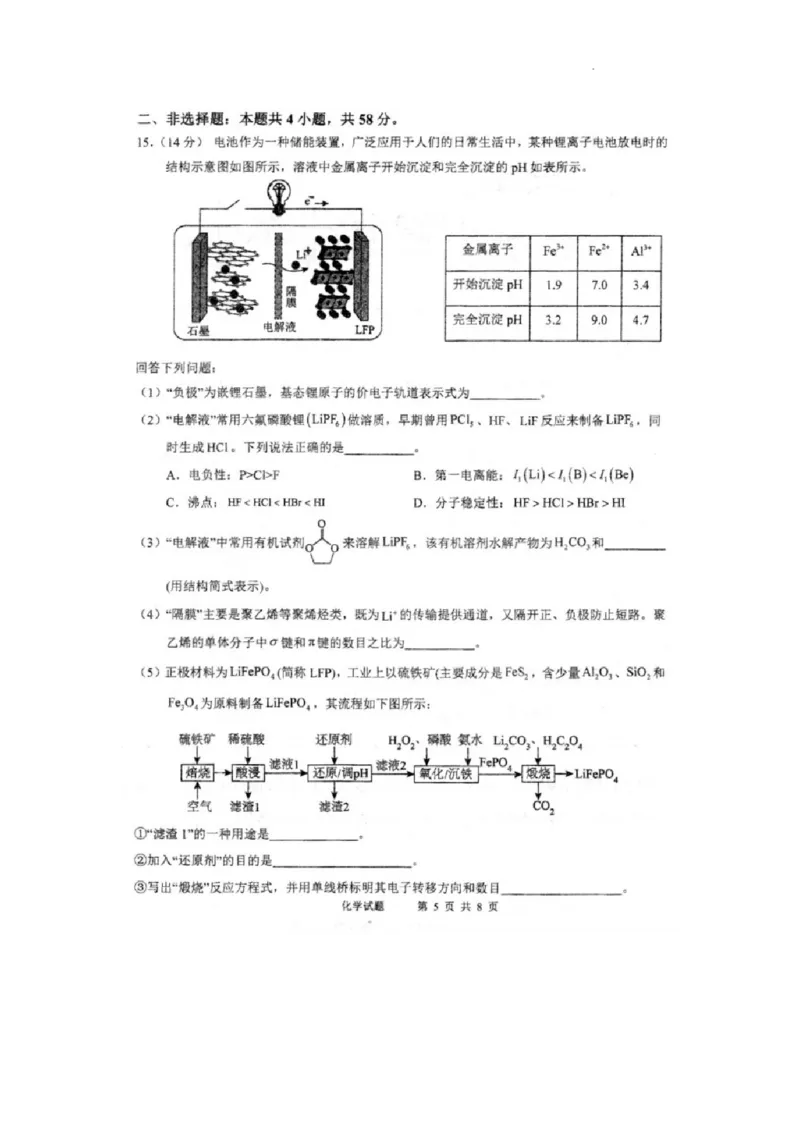 二、非选择题：本题共 4 小题，共 58 分。
15.（14 分） 电池作为一种储能装置，广泛应用于人们的日常生活中，某种锂离子电池放电时的
结构示意图如图所示，溶液中金属离子开始沉淀和完全沉淀的 pH 如表所示。
e⁻
Li⁺
隔膜
石墨 电解液 LFP
金属离子 Fe³⁺ Fe²⁺ Al³⁺
开始沉淀 pH 1.9 7.0 3.4
完全沉淀 pH 3.2 9.0 4.7
回答下列问题：
（1）“负极”为嵌锂石墨，基态锂原子的价电子轨道表示式为__________。
（2）“电解液”常用六氟磷酸锂(LiPF₆)做溶质，早期曾用PCl₅、HF、LiF反应来制备LiPF₆，同
时生成HCl。下列说法正确的是__________。
A．电负性：P>Cl>F B．第一电离能：I₁(Li)<I₁(B)<I₁(Be)
C．沸点：HF<HCl<HBr<HI D．分子稳定性：HF>HCl>HBr>HI
O
（3）“电解液”中常用有机试剂 O O 来溶解LiPF₆，该有机溶剂水解产物为H₂CO₃和__________
(用结构简式表示)。
（4）“隔膜”主要是聚乙烯等聚烯烃类，既为Li⁺的传输提供通道，又隔开正、负极防止短路。聚
乙烯的单体分子中σ键和π键的数目之比为__________。
（5）正极材料为LiFePO₄(简称 LFP)，工业上以硫铁矿(主要成分是FeS₂，含少量Al₂O₃、SiO₂和
Fe₃O₄为原料制备LiFePO₄，其流程如下图所示：
硫铁矿 稀硫酸 还原剂 H₂O₂、磷酸 氨水 Li₂CO₃、H₂C₂O₄
焙烧 酸浸 滤液1 还原/调pH 滤液2 氧化/沉铁 FePO₄ 煅烧 LiFePO₄
空气 滤渣1 滤渣2 CO₂
①“滤渣 1”的一种用途是____________。
②加入“还原剂”的目的是____________________。
③写出“煅烧”反应方程式，并用单线桥标明其电子转移方向和数目________________。
化学试题 第 5 页 共 8 页